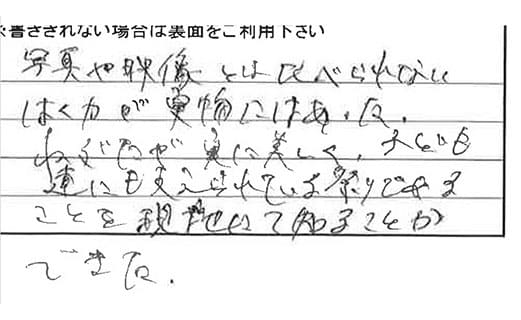 ※書ききれない場合は裏面をご利用下さい
写真や映像とは比べられない
はく力が実物にはあった。
ねぶたが実に美しく、子ども
達にも支えられている祭りである
ことを現地にて知ることが
できた。